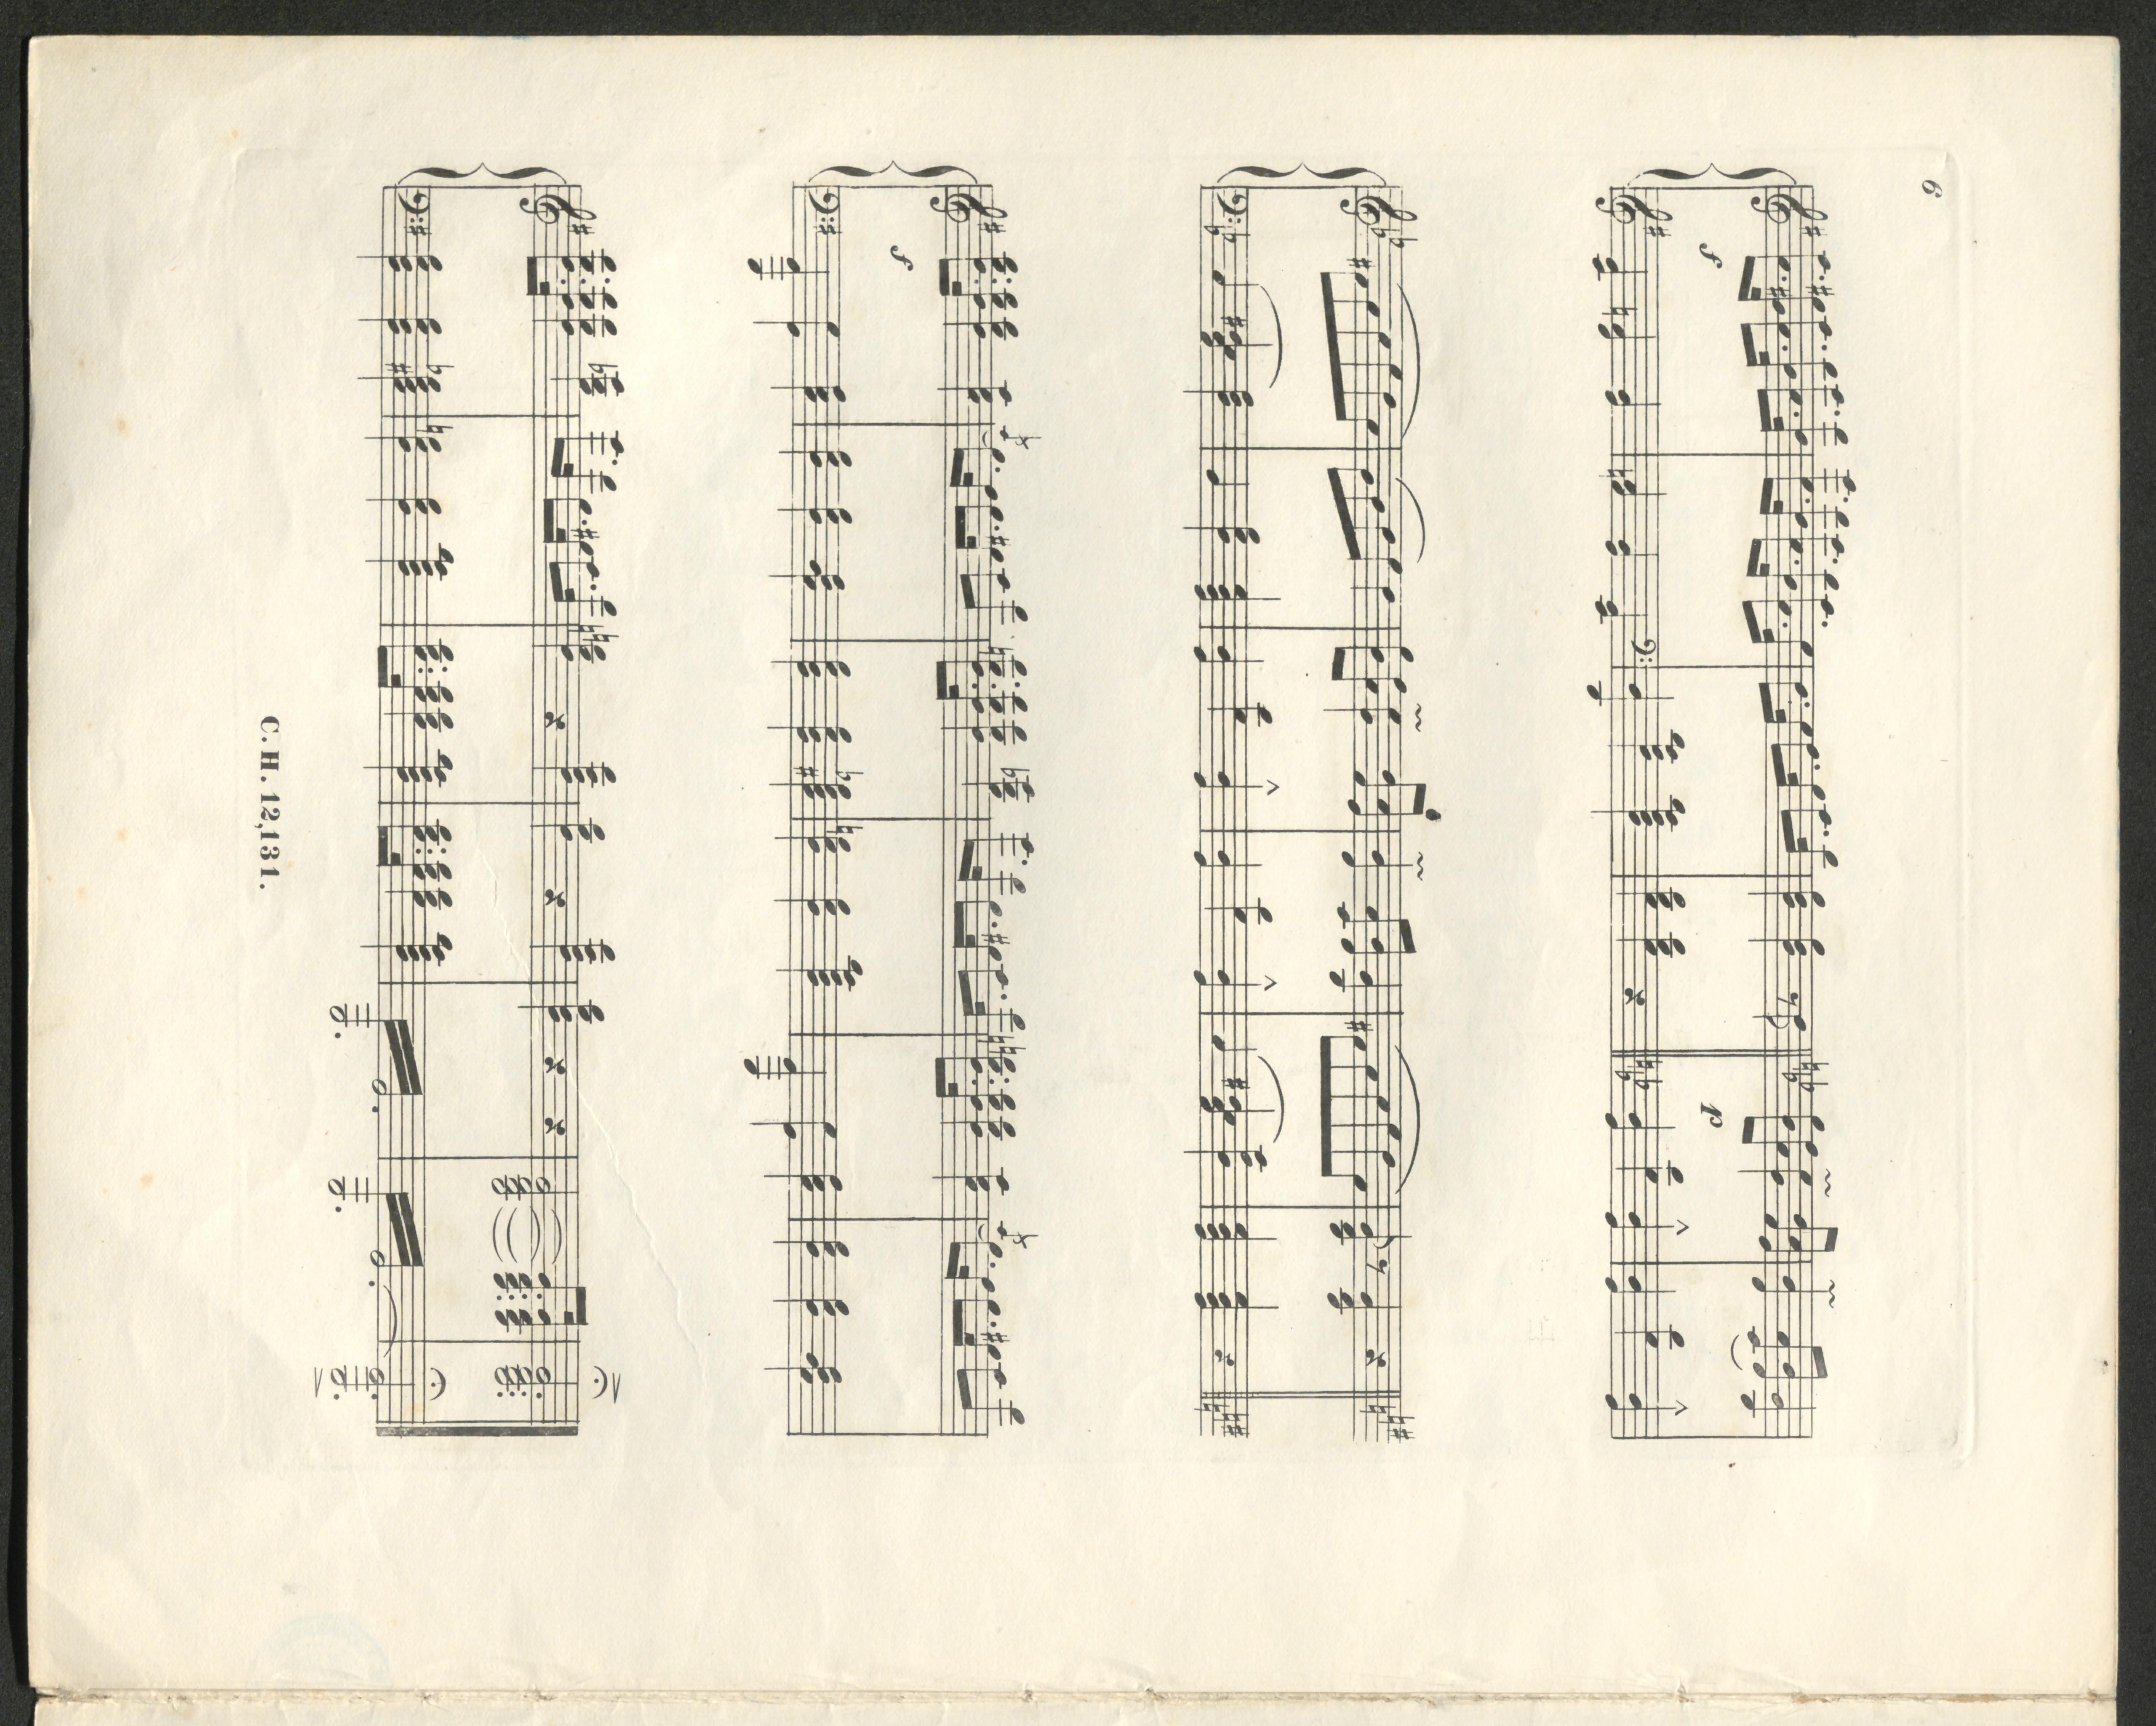 6
f
p
f
C. H. 12,131.